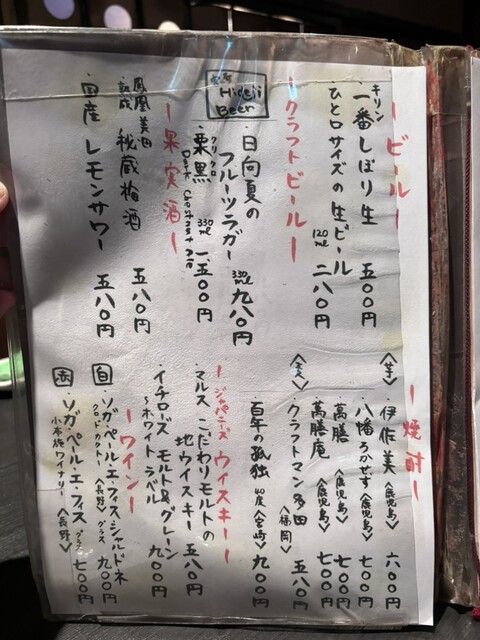 ービールー
キリン
一番しぼり生 五〇〇円
ひと口サイズの生ビール 120ml 二八〇円
ークラフトビールー
Hideji Beer
日向夏の
フルーツラガー 330ml 九八〇円
クリクロ
栗黒 330ml 一、五〇〇円
Dark chestnut ale
ー果実酒ー
鳳凰美田
熟成 秘蔵梅酒 五八〇円
国産 レモンサワー 五八〇円
ー焼酎ー
〈芋〉
伊佐美〈鹿児島〉 六〇〇円
八幡ろかせず〈鹿児島〉 七〇〇円
萬膳〈鹿児島〉 七〇〇円
萬膳庵〈鹿児島〉 七〇〇円
〈麦〉
クラフトマン多田〈福岡〉 五八〇円
百年の孤独 40度〈宮崎〉 九〇〇円
ージャパニーズウイスキーー
マルス こだわりモルトの
地ウイスキー 五八〇円
イチローズ モルト&グレーン
〜ホワイトラベル 九〇〇円
ーワインー
白 ソガ・ペール・エ・フィス・シャルドネ
〈長野〉グラス 九〇〇円
赤 ソガ・ペール・エ・フィス グラス 七〇〇円
小布施ワイナリー〈長野〉